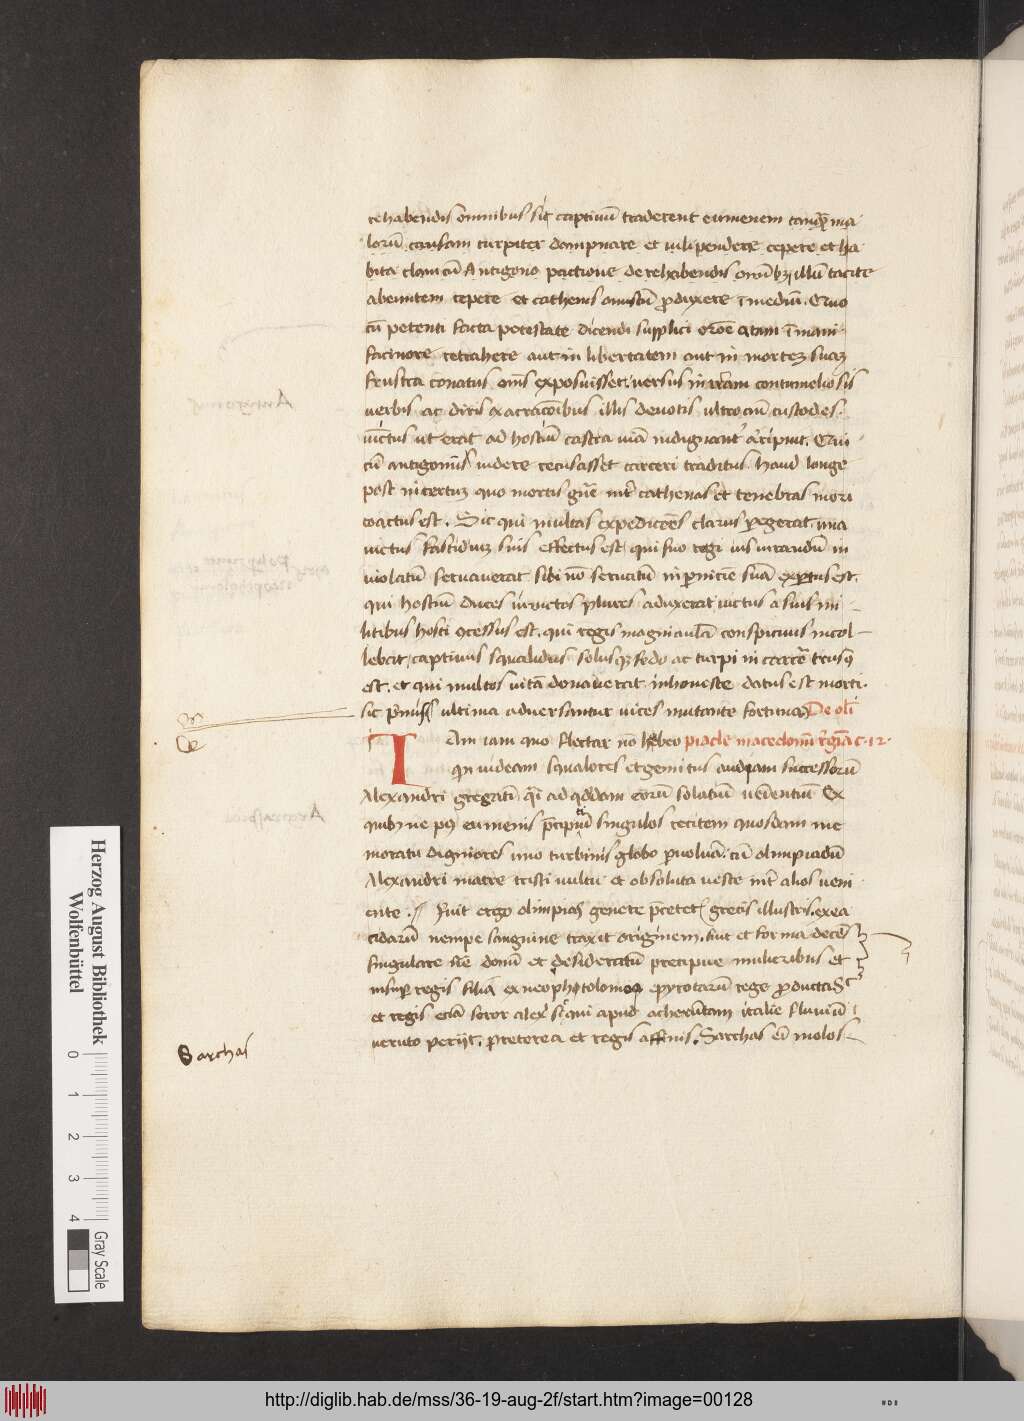 rehabendis omnibus si captiuū traderent eumenem tandē ma
lorū causam turpiter dampnare et uilipendere cepere et ha
bita clam cū Antigono pactione de rehibendis oīibꝫ illū tacite
abeuntem cepere et cathenis onustū ꝓduxere ī mediū. Quo
cū petenti facta potestate dicendi supplici orōe
facinore retrahere aut in libertatem aut in mortez suaz
frustra conatus oīis exposuisset. uersus in iram contumeliosis
uerbis ac diris execratōibus illis deuotis ultro cum custodes.
uīctus ut erat ad hostiū castra uiā indignant arripuit. Qui
cū antigonus uidere recusasset carceri traditus haud longe
post incertuz quo mortis gn̄e int̄ cathenas et tenebras mori
coactus est. Sic qui multas expedicōes clarus ꝑegerat. una
uictus fastiduz suis effectus est. qui suo regi ius iurandū in
uiolatū seruauerat sibi nō seruatū in ꝑnitiē suā exꝑtus est.
qui hostiū duces inuictos plures aduxerat uictus a suis mi
litibus hosti cessus est. qui regis magni aulā conspicuus incol
lebat, captiuus squalidus solusqꝫ fedo ac turpi in carcē trusꝰ
est. et qui multos uitā donauerat inhoneste datus est morti.
sic ultima aduersantur uices mutante fortuna De oli
Iam iam quo flectar nō habeo piade macedonū rēgīa c. 12.
qn uideam squalores et gemitus audiam successorū
Alexandri gregatī q̄i ad qddam eorū solatiū uēdentiū Ex
quibꝫ ne pꝰ eumenis p̄cipiuū singulos recitem quosdam me
moratu digniores imo turbinis globo ꝓuoluā. cū olimpiadū
Alexandri matre tristi uultu et obsoluta ueste int̄ alios ueni
ente. Fuit ergo olimpias genere p̄teret grecis illustris. ex ea
cidarū nempe sanguine traxit originem. fuit et forma decē
singulare sāe donū et desideratū precipue mulieribus et
insuꝑ regis filia ex neopholomoo epyrotarū rege ꝓducta S
et regis eciā soror alex̄ qui apud acherūtam italie fluuiū
ueruto periit. preterea et regis affinis. Sarchas eī molos
Sarchas
Herzog August Bibliothek
Wolfenbüttel
0 1 2 3 4
Gray Scale
http://diglib.hab.de/mss/36-19-aug-2f/start.htm?image=00128